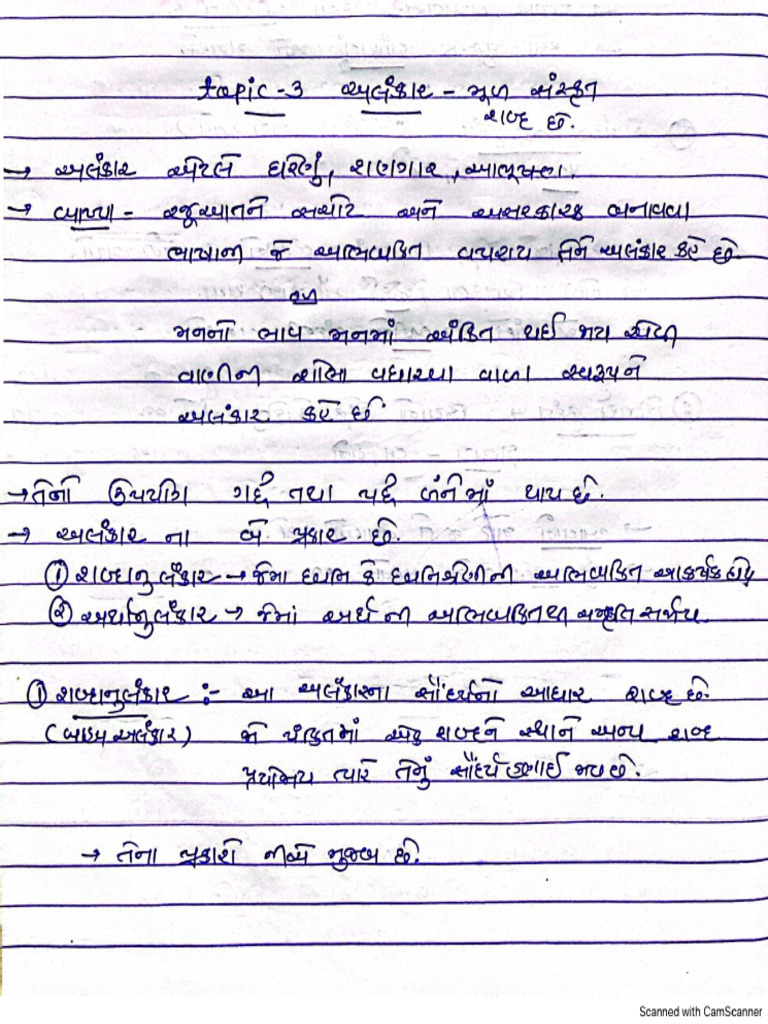 topic-3 અલંકાર - મૂળ સંસ્કૃત
શબ્દ છે.
→ અલંકાર એટલે ઘરેણું, શણગાર, આભૂષણ
→ વ્યાખ્યા - રજૂઆતને સચોટ અને અસરકારક બનાવવા
ભાષાની જે અભિવ્યકિત વપરાય તેને અલંકાર કહે છે.
મનનો ભાવ મનમાં અંકિત થઈ જાય એવી
વાણીની શોભા વધારવા વાળા સ્વરૂપને
અલંકાર કહે છે.
→ તેનો ઉપયોગ ગદ્દ તથા પદ્દ બંનેમાં થાય છે.
→ અલંકાર ના બે પ્રકાર છે.
① શબ્દાનુલંકાર → જેમા ધ્વનિ કે ધ્વનિશ્રેણીની અભિવ્યકિત આકર્ષક હોય
② અર્થાનુલંકાર → જેમાં અર્થ ની અભિવ્યકિતથી ચમત્કૃતિ સર્જાય.
① શબ્દાનુલંકાર :- આ અલંકારના સૌંદર્યનો આધાર શબ્દ છે.
(બાહ્ય અલંકાર) જે પંકિતમાં એક શબ્દને સ્થાને અન્ય શબ્દ
પ્રયોજાય ત્યારે તેનું સૌંદર્ય હણાઈ જાય છે.
→ તેના પ્રકારો નીચે મુજબ છે.
Scanned with CamScanner